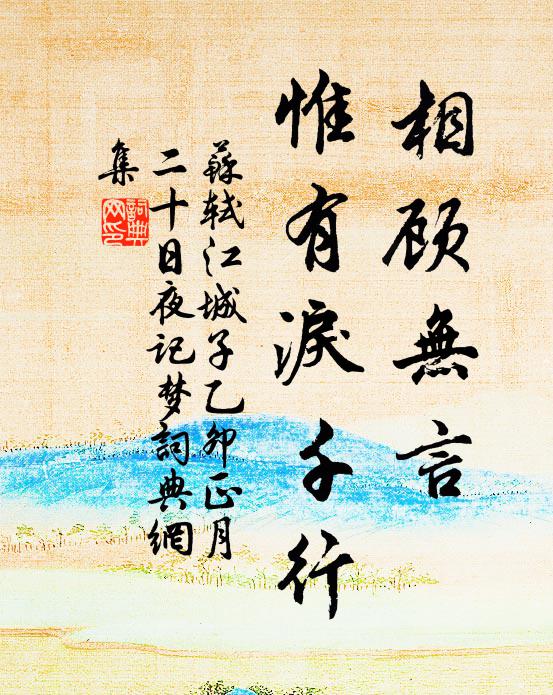 相顾無言
惟有淚千行
蘇轼江城子乙卯正月
二十日夜记梦詞典網
集
詞典
网印